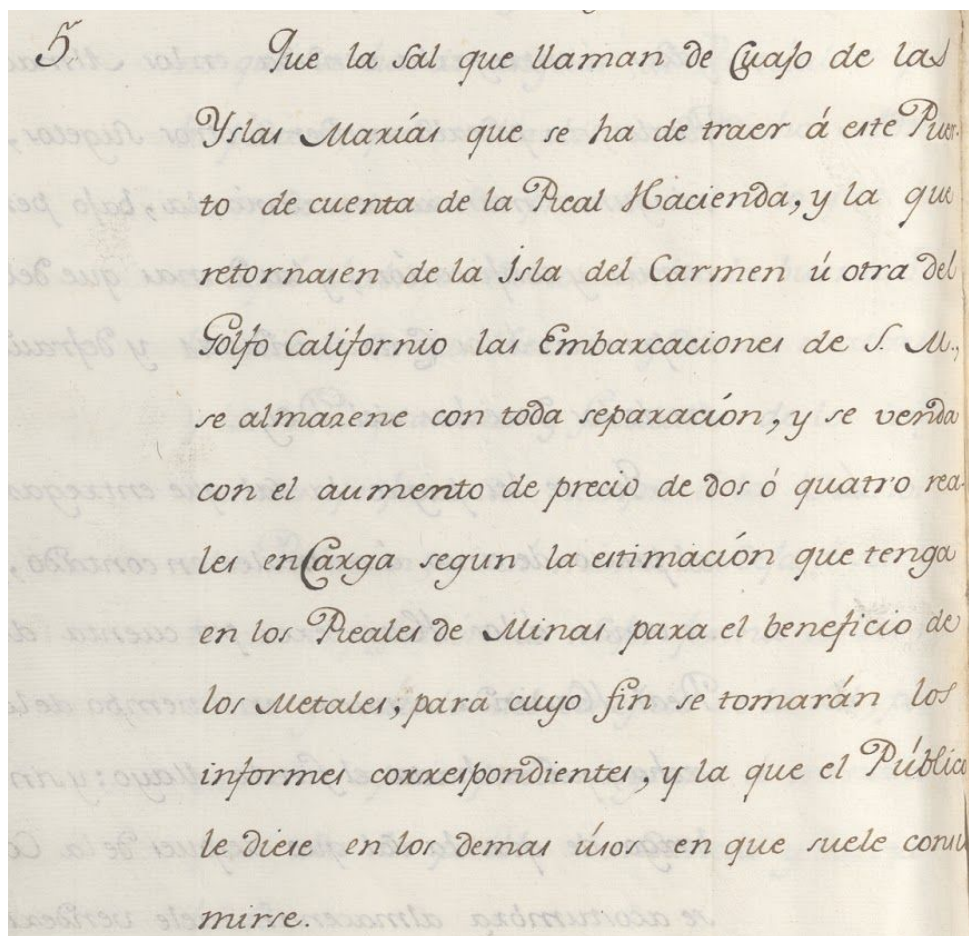 5. Que la Sal que llaman de Cuajo de las
Yslas Marías que se ha de traer á este Puer-
to de cuenta de la Real Hacienda, y la que
retornasen de la Isla del Carmen ú otra del
Golfo Californio las Embarcaciones de S. M.,
se almazene con toda separación, y se venda
con el aumento de precio de dos ó quatro rea-
les en Carga segun la estimación que tenga
en los Reales de Minas para el beneficio de
los Metales; para cuyo fin se tomarán los
informes correspondientes, y la que el Público
le diese en los demas úsos en que suele consu
mirse.